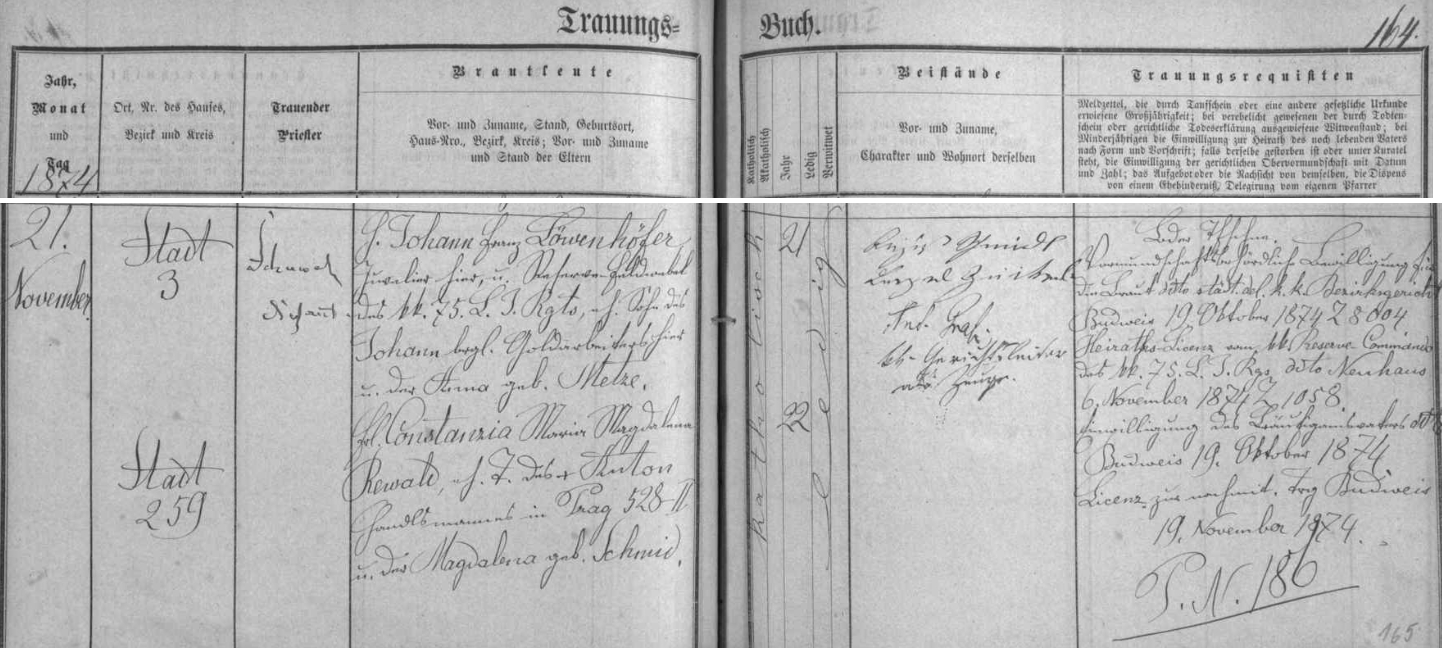 Trauungs=
Buch.
164.
Jahr,
Monat
und
Tag
1874
Ort, Nr. des Hauses,
Bezirk und Kreis
Trauender
Priester
Brautleute
Vor- und Zuname, Stand, Geburtsort,
Haus-Nro., Bezirk, Kreis; Vor- und Zuname
und Stand der Eltern
Katholisch
Akatholisch
Jahr
Ledig
Verwitwet
Beistände
Vor- und Zuname,
Charakter und Wohnort derselben
Trauungsrequisiten
Meldzettel, die durch Taufschein oder eine andere gesetzliche Urkunde
erwiesene Großjährigkeit; bei verehelicht gewesenen der durch Todten-
schein oder gerichtliche Todeserklärung ausgewiesene Witwenstand; bei
Minderjährigen die Einwilligung zur Heirath des noch lebenden Vaters
nach Form und Vorschrift; falls derselbe gestorben ist oder unter Kuratel
steht, die Einwilligung der gerichtlichen Obervormundschaft mit Datum
und Zahl; das Aufgebot oder die Nachsicht von demselben, die Dispens
von einem Ehehinderniß, Delegirung vom eigenen Pfarrer
21.
November
Stadt
3
Stadt
259
H. Johann Franz Löwenhöfer
Juvelier hier, u. Reserve-Feldwebel
des kk. 75. L. I. Rgts, eh. Sohn des
Johann brgl. Goldarbeiters hier
u. der Anna geb. Metze.
Frl. Constanzia Maria Magdalena
Rewald, eh. T. des + Anton
Handlsmannes in Prag 528-II
u. der Magdalena geb. Schmid.
katholisch
21
22
ledig
Ant.
als Zeuge.
Vormundschaftsbehördliche Bewilligung für
die Braut ddto städt. del. k. k. Bezirksgericht
Budweis 19. Oktober 1874 Z 8004
Heiraths-Licenz vom kk. Reserve Commando
des kk. 75. L. I. Rgs ddto Neuhaus
6. November 1874 Z 1058.
Einwilligung des Bräutigamsvaters ddto
Budweis 19. Oktober 1874
Licenz zur nachmit. Trg Budweis
19. November 1874.
P. N. 186
165